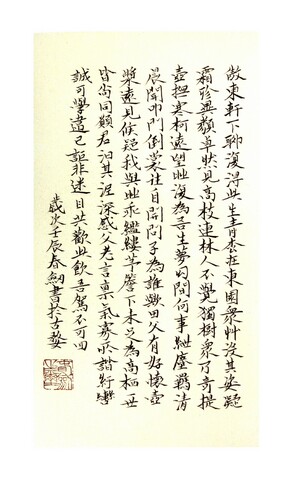 傲東軒下聊復得此生青松在東園衆艸没其姿凝
霜殄異類卓然見高枝連林人不覺獨樹衆乃奇提
壺撫寒柯遠望時復為吾生夢幻間何事紲塵羈清
晨聞叩門倒裳往自開問子為誰歟田父有好懷壺
漿遠見候疑我與時乖繿縷茅簷下未足為高栖一世
皆尚同願君汩其泥深感父老言稟氣寡所諧紆轡
誠可學違己詎非迷且共歡此飲吾駕不可回
歲次壬辰春書於古婺